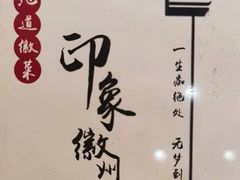 地道徽菜
印象徽州
一生痴绝处
无梦到